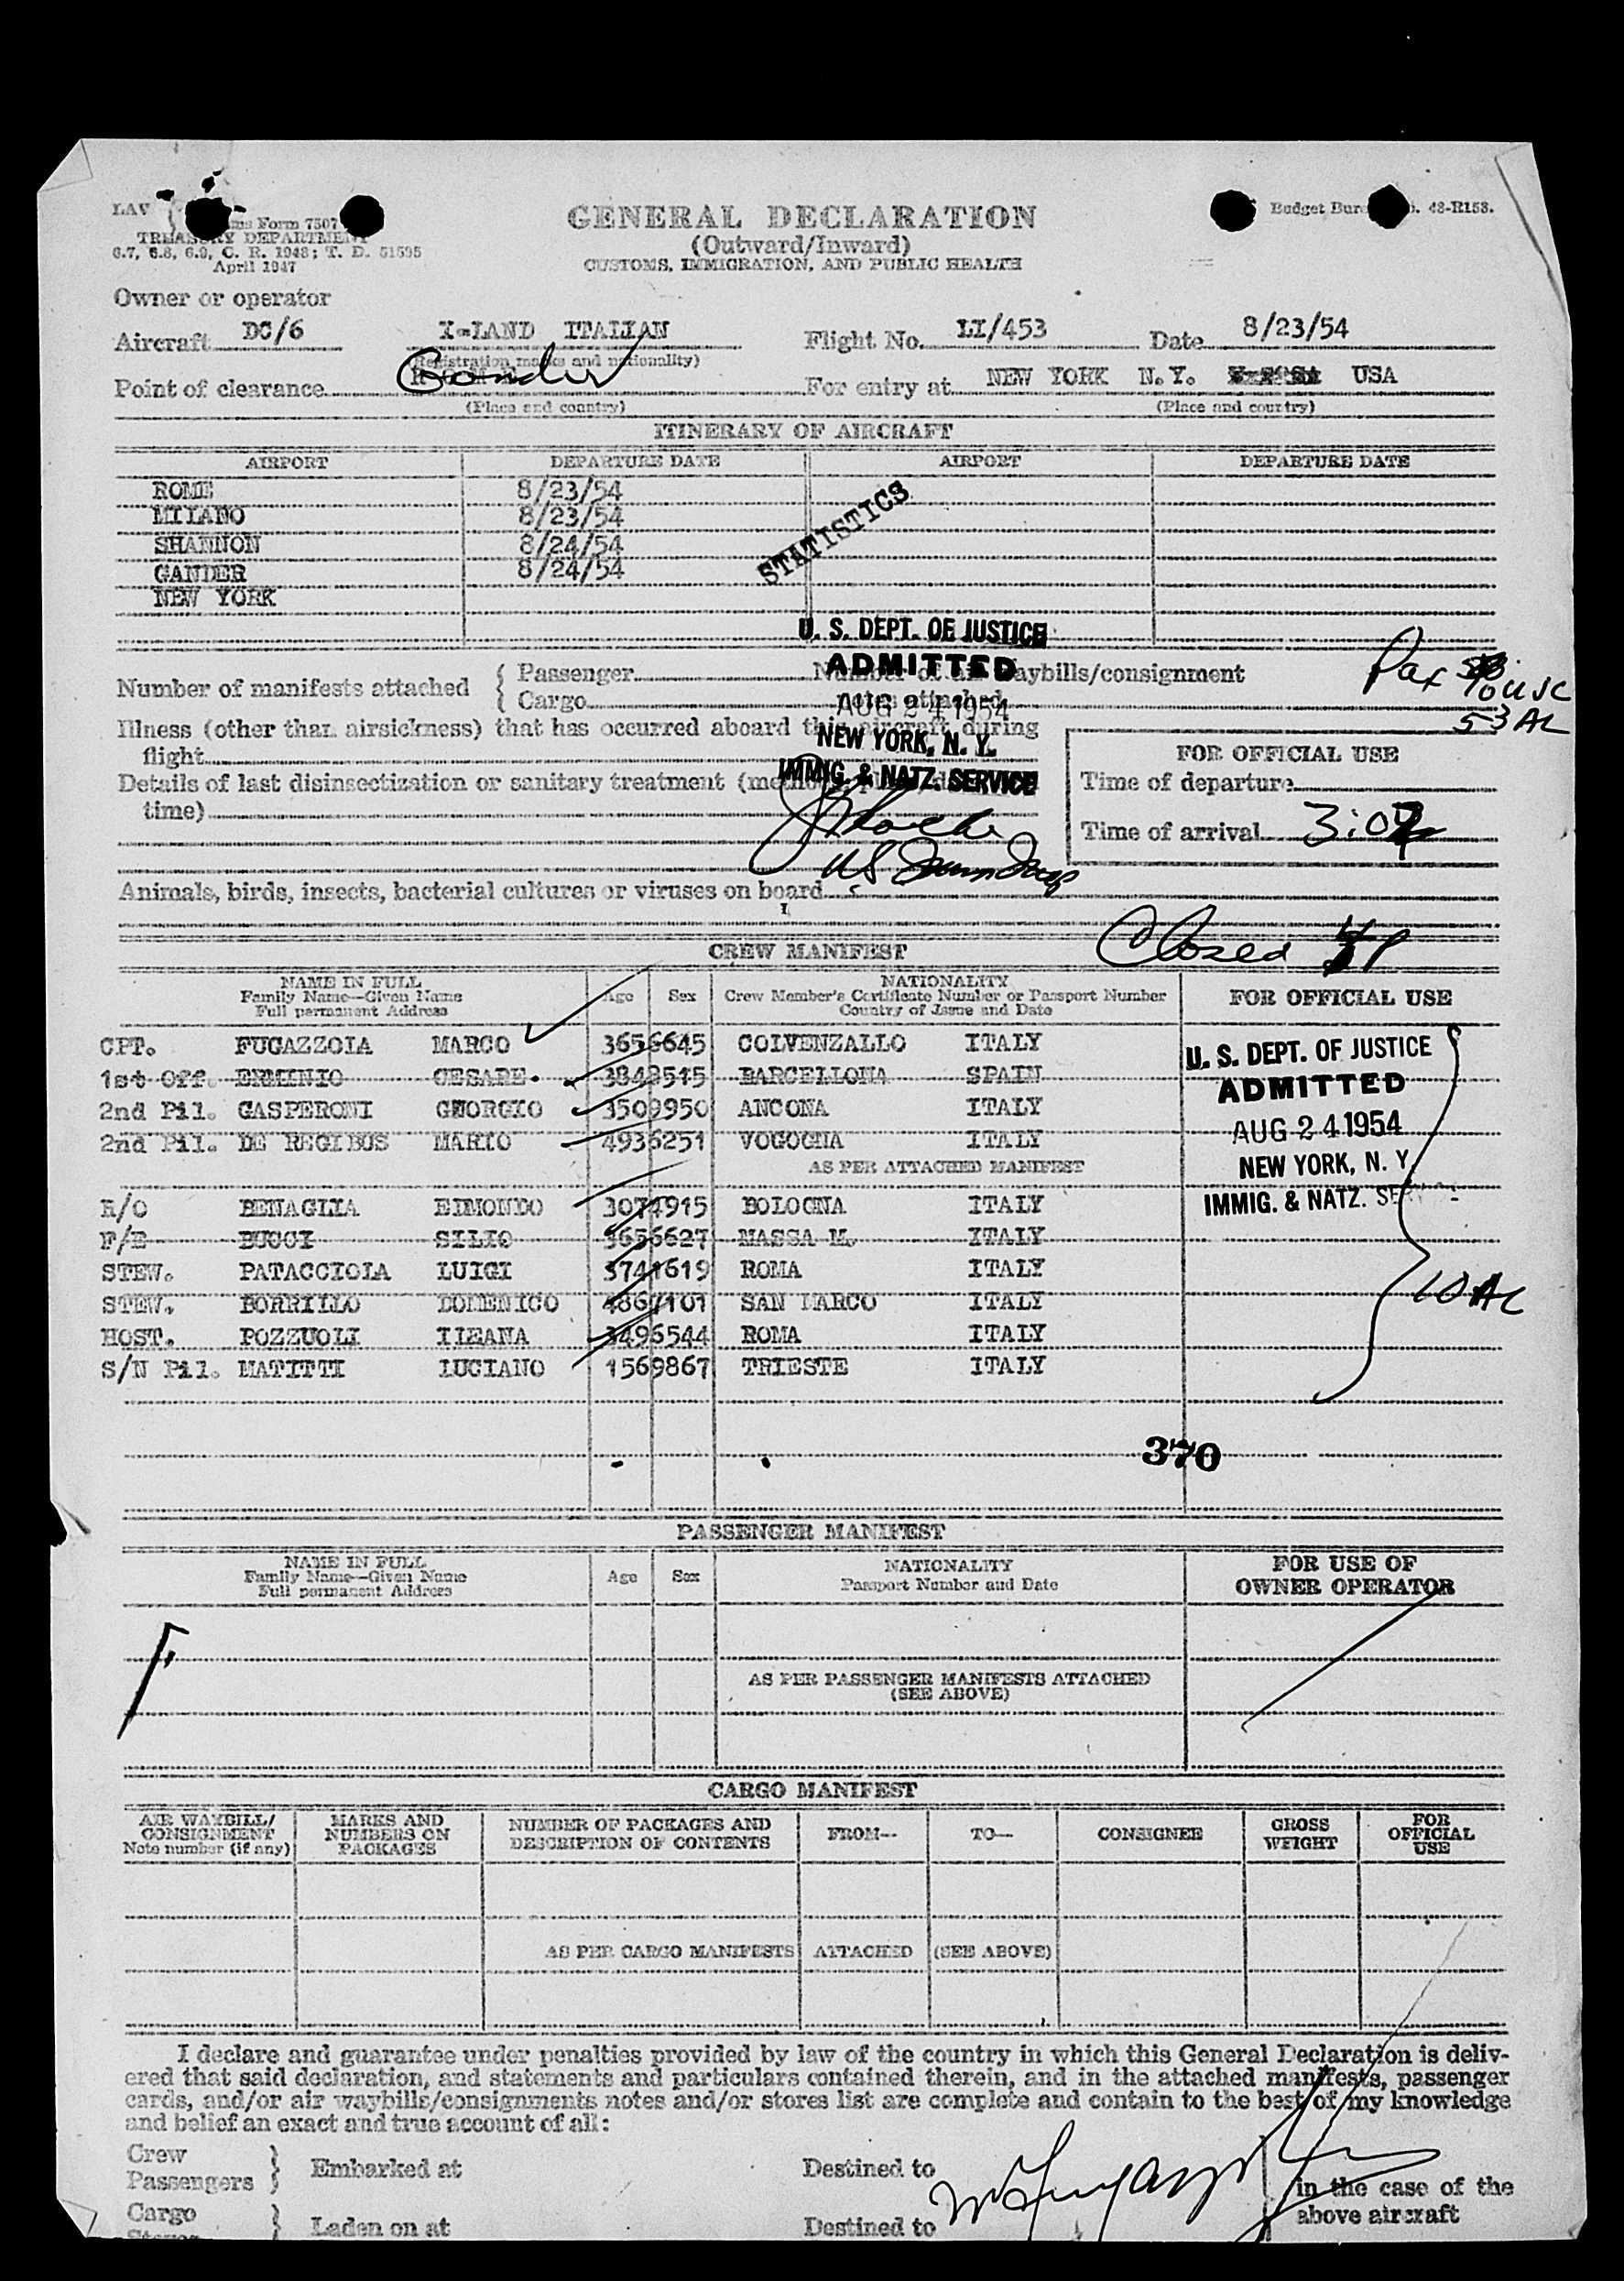 LAV
Form 7507
TREASURY DEPARTMENT
6.7, 6.8, 6.9, C. R. 1943; T. D. 51595
April 1947
GENERAL DECLARATION
(Outward/Inward)
CUSTOMS, IMMIGRATION, AND PUBLIC HEALTH
48-R158.
Owner or operator
Aircraft DC/6 I-LAND ITALIAN Flight No. LI/453 Date 8/23/54
(Registration marks and nationality)
Point of clearance Gander For entry at NEW YORK N.Y. USA
(Place and country) (Place and country)
ITINERARY OF AIRCRAFT
AIRPORT DEPARTURE DATE AIRPORT DEPARTURE DATE
ROME 8/23/54
MILANO 8/23/54
SHANNON 8/24/54
GANDER 8/24/54
NEW YORK
STATISTICS
U. S. DEPT. OF JUSTICE
ADMITTED
AUG 24 1954
NEW YORK, N. Y.
IMMIG. & NATZ. SERVICE
Number of manifests attached { Passenger
Cargo
waybills/consignment
attached
Pax
10 USC
53 AL
Illness (other than airsickness) that has occurred aboard this aircraft during
flight
Details of last disinsectization or sanitary treatment
time)
FOR OFFICIAL USE
Time of departure
Time of arrival 3:07
US
Animals, birds, insects, bacterial cultures or viruses on board
Closed
CREW MANIFEST
NAME IN FULL
Family Name—Given Name
Full permanent Address
Age Sex
NATIONALITY
Crew Member's Certificate Number or Passport Number
Country of Issue and Date
FOR OFFICIAL USE
CPT. FUGAZZOLA MARCO 3656645 COLVENZALLO ITALY
1st Off. ERMINIO CESARE. 3848515 BARCELLONA SPAIN
2nd Pil. GASPERONI GEORGIO 3509950 ANCONA ITALY
2nd Pil. DE REGIBUS MARIO 4936251 VOGOGNA ITALY
AS PER ATTACHED MANIFEST
R/O BENAGLIA EDMONDO 3074915 BOLOGNA ITALY
F/E BUCCI SILIO 3656627 MASSA M. ITALY
STEW. PATACCIOLA LUIGI 3741619 ROMA ITALY
STEW. BORRILLO DOMENICO 4867101 SAN MARCO ITALY
HOST. POZZUOLI ILEANA 3496544 ROMA ITALY
S/N Pil. MATITTI LUCIANO 1569867 TRIESTE ITALY
U. S. DEPT. OF JUSTICE
ADMITTED
AUG 24 1954
NEW YORK, N. Y.
IMMIG. & NATZ.
10 AL
370
PASSENGER MANIFEST
NAME IN FULL
Family Name—Given Name
Full permanent Address
Age Sex
NATIONALITY
Passport Number and Date
FOR USE OF
OWNER OPERATOR
AS PER PASSENGER MANIFESTS ATTACHED
(SEE ABOVE)
CARGO MANIFEST
AIR WAYBILL/
CONSIGNMENT
Note number (if any)
MARKS AND
NUMBERS ON
PACKAGES
NUMBER OF PACKAGES AND
DESCRIPTION OF CONTENTS
FROM—
TO—
CONSIGNEE
GROSS
WEIGHT
FOR
OFFICIAL
USE
AS PER CARGO MANIFESTS ATTACHED (SEE ABOVE)
I declare and guarantee under penalties provided by law of the country in which this General Declaration is deliv-
ered that said declaration, and statements and particulars contained therein, and in the attached manifests, passenger
cards, and/or air waybills/consignments notes and/or stores list are complete and contain to the best of my knowledge
and belief an exact and true account of all:
Crew
Passengers } Embarked at Destined to
in the case of the
above aircraft
Cargo
Stores } Laden on at Destined to